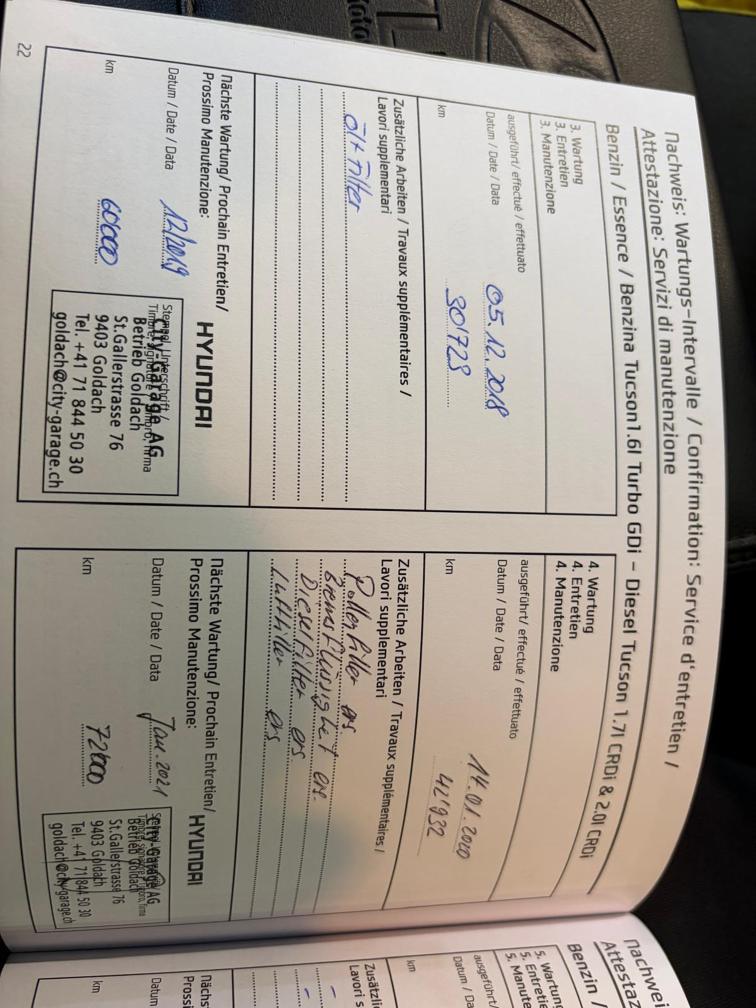 Nachweis: Wartungs-Intervalle / Confirmation: Service d'entretien /
Attestazione: Servizi di manutenzione
Benzin / Essence / Benzina Tucson1.6l Turbo GDi - Diesel Tucson 1.7l CRDi & 2.0l CRDi
3. Wartung
3. Entretien
3. Manutenzione
ausgeführt/ effectué / effettuato
Datum / Date / Data 05.12.2018
km 30'723
Zusätzliche Arbeiten / Travaux supplémentaires /
Lavori supplementari
Öl+Filter
Nächste Wartung/ Prochain Entretien/
Prossimo Manutenzione:
HYUNDAI
Datum / Date / Data 12/2019
km 60000
Stempel, Unterschrift /
City-Garage AG
Betrieb Goldach
St.Gallerstrasse 76
9403 Goldach
Tel. +41 71 844 50 30
goldach@city-garage.ch
22
4. Wartung
4. Entretien
4. Manutenzione
ausgeführt/ effectué / effettuato
Datum / Date / Data 14.01.2020
km 42'932
Zusätzliche Arbeiten / Travaux supplémentaires /
Lavori supplementari
Pollenfilter ers.
Bremsflüssigkeit ers.
Dieselfilter ers.
Luftfilter ers
Nächste Wartung/ Prochain Entretien/
Prossimo Manutenzione:
HYUNDAI
Datum / Date / Data Jan. 2021
km 72000
City-Garage AG
Betrieb Goldach
St.Gallerstrasse 76
9403 Goldach
Tel. +41 71 844 50 30
goldach@city-garage.ch
Nachwei
Attestaz
Benzin /
5. Wartung
5. Entreti
5. Manute
ausgeführt/
Datum / Da
km
Zusätzli
Lavori s
Nächst
Prossi
Datum
km